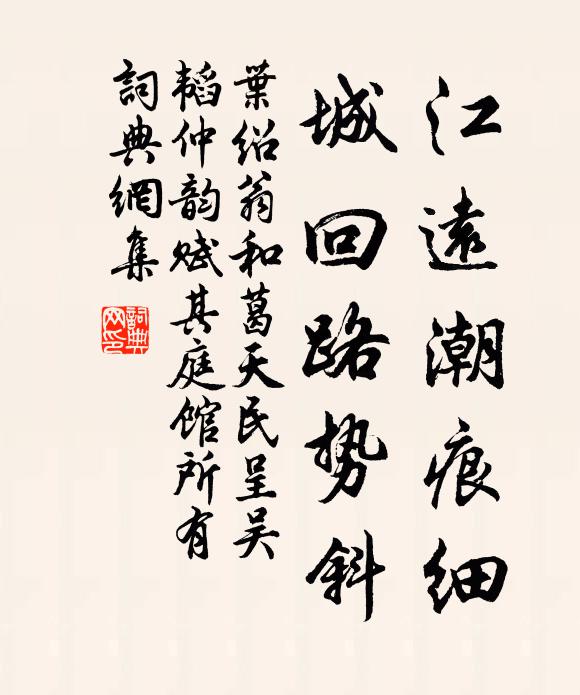 江遠潮痕細
城回路势斜
葉绍翁和葛天民呈吴
韬仲韵赋其庭馆所有
詞典網集
詞典
网印